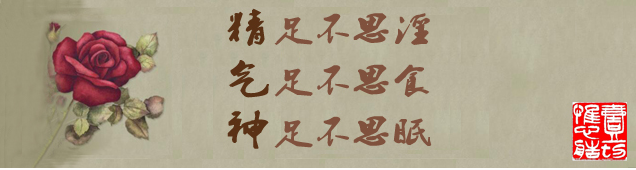 精足不思淫
气足不思食
神足不思眠